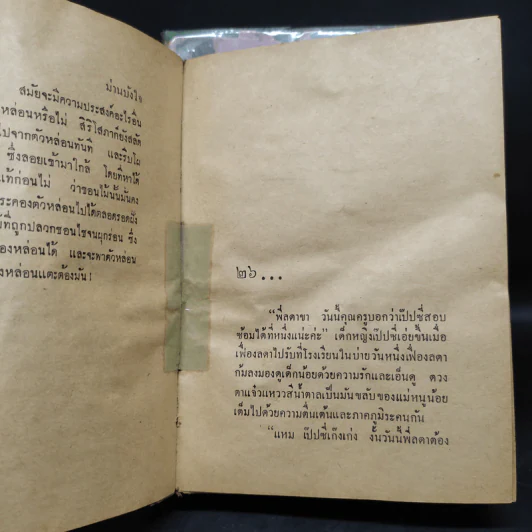 ม่านบังใจ
สมัยจะมีความประสงค์อะไรอื่น
หล่อนหรือไม่ สิริโสภาก็ยังสลัด
ไปจากตัวหล่อนทันที และรีบโผ
ซึ่งลอยเข้ามาใกล้ โดยที่หาได้
แท้ก่อนไม่ ว่าขอนไม้นั้นมันคง
ระคองตัวหล่อนไปได้ตลอดรอดฝั่ง
ม้ที่ถูกปลวกชอนไชจนผุกร่อน ซึ่ง
องหล่อนได้ และจะพาตัวหล่อน
งหล่อนแตะต้องมัน!
๒๖...
“พี่ลดาขา วันนี้คุณครูบอกว่าเป๊ปซี่สอบ
ซ้อมได้ที่หนึ่งแน่ะค่ะ” เด็กหญิงเป๊ปซี่เอ่ยขึ้นเมื่อ
เฟื่องลดาไปรับที่โรงเรียนในบ่ายวันหนึ่งเฟื่องลดา
ก้มลงมองดูเด็กน้อยด้วยความรักและเอ็นดู ดวง
ตาแจ๋วแหววสีน้ำตาลเป็นมันขลับของแม่หนูน้อย
เต็มไปด้วยความตื่นเต้นและภาคภูมิระคนกัน
“แหม เป๊ปซี่เก๊งเก่ง งั้นวันนี้พี่ลดาต้อง